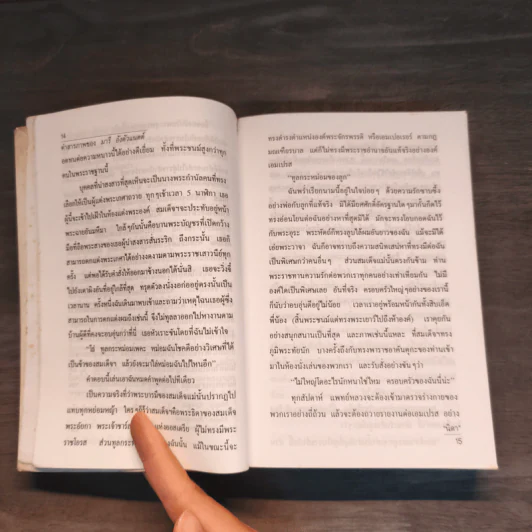 14
คำสารภาพของ มารี อังตัวแนตต์
อดทนต่อความหนาวนี้ได้อย่างดีเยี่ยม ทั้งที่พระชนม์สูงกว่าทุก
คนในราชฐานนี้
บุคคลที่น่าสงสารที่สุดเห็นจะเป็นนางพระกำนัลคนที่ทรง
เลือกให้เป็นผู้แต่งพระเกศาถวาย ทุกๆเช้าเวลา 5 นาฬิกา เธอ
ผู้นี้จะเข้าไปเฝ้าในห้องแต่งพระองค์ สมเด็จฯจะประทับอยู่หน้า
พระฉายอันมหึมา ใกล้ๆกันนั้นคือบานพระบัญชรที่เปิดกว้าง
มือที่ถือพระสางของเธอผู้น่าสงสารสั่นระริก ถึงกระนั้น เธอก็
สามารถตกแต่งพระเกศาได้อย่างงดงามตามพระราชเสาวนีย์ทุก
ครั้ง แต่พอได้รับคำสั่งให้ออกมาข้างนอกได้นั่นสิ เธอจะวิ่งรี่
ไปยังเตาผิงอันที่อยู่ใกล้ที่สุด ทรุดตัวลงนั่งงอก่ออยู่ตรงนั้นเป็น
เวลานาน ครั้งหนึ่งฉันเดินมาพบเข้าและถามว่าเหตุไฉนเธอผู้ซึ่ง
สามารถในการตกแต่งผมถึงเช่นนี้ จึงไม่ทูลลาออกไปหางานตาม
บ้านผู้ดีที่คงจะอบอุ่นกว่าที่นี่ เธอหัวเราะขันโดยที่ฉันไม่เข้าใจ
“โธ่ ทูลกระหม่อมเพคะ หม่อมฉันโชคดีอย่างวิเศษที่ได้
เป็นข้าของสมเด็จฯ แล้วยังจะมาไล่หม่อมฉันไปไหนอีก”
คำตอบนี้เล่นเอาฉันหมดคำพูดต่อไปทีเดียว
เป็นความจริงที่ว่าพระบารมีของสมเด็จแม่นั้นปรากฏไป
แทบทุกหย่อมหญ้า ใครๆก็รู้ว่าสมเด็จฯคือพระธิดาของสมเด็จ
พระอัยกา พระเจ้าชาร์ล แห่งออสเตรีย ผู้ไม่ทรงมีพระ
ราชโอรส ส่วนทูลกระ ฉันนั้น แม้ในขณะนี้จะ
ทรงดำรงตำแหน่งองค์พระจักรพรรดิ หรือเอมเปอเรอร์ ตามกฎ
มณเฑียรบาล แต่ก็ไม่ทรงมีพระราชอำนาจอันแท้จริงอย่างองค์
เอมเปรส
“ทูลกระหม่อมของลูก”
ฉันพร่ำเรียกนามนี้อยู่ในใจบ่อยๆ ด้วยความรักซาบซึ้ง
อย่างพ่อกับลูกที่แท้จริง มิได้มียศศักดิ์อัครฐานใดๆมากั้นกีดไว้
ทรงอ่อนโยนต่อฉันอย่างหาที่สุดมิได้ มักจะทรงโอบกอดฉันไว้
กับพระอุระ พระหัตถ์ก็ทรงลูบไล้ผมอันยาวของฉัน แม้จะมิได้
เอ่ยพระวาจา ฉันก็อาจทราบถึงความสนิทเสน่หาที่ทรงมีต่อฉัน
เป็นพิเศษกว่าคนอื่นๆ ส่วนสมเด็จแม่นั้นตรงกันข้าม ท่าน
พระราชทานความรักต่อพวกเราทุกคนอย่างเท่าเทียมกัน ไม่มี
องค์ใดเป็นพิเศษเลย อันที่จริง ครอบครัวใหญ่ๆอย่างของเรานี้
ก็นับว่าอบอุ่นดีอยู่ไม่น้อย เวลาเราอยู่พร้อมหน้ากันทั้งสิบเอ็ด
พี่น้อง (สิ้นพระชนม์แต่ทรงพระเยาว์ไปถึงห้าองค์) เราคุยกัน
อย่างสนุกสนานเป็นที่สุด และภาพเช่นนี้แหละ ที่สมเด็จฯทรง
ภูมิพระทัยนัก บางครั้งถึงกับทรงพาราชอาคันตุกะของท่านเข้า
มาในห้องนั่งเล่นของพวกเรา และรับสั่งอย่างขันๆว่า
“ไม่ใหญ่โตอะไรนักหนาใช่ไหม ครอบครัวของฉันนี่น่ะ”
ทุกสัปดาห์ แพทย์หลวงจะต้องเข้ามาตรวจร่างกายของ
พวกเราอย่างถี่ถ้วน แล้วจะต้องถวายรายงานต่อเอมเปรส อย่าง
“นิดา”
15